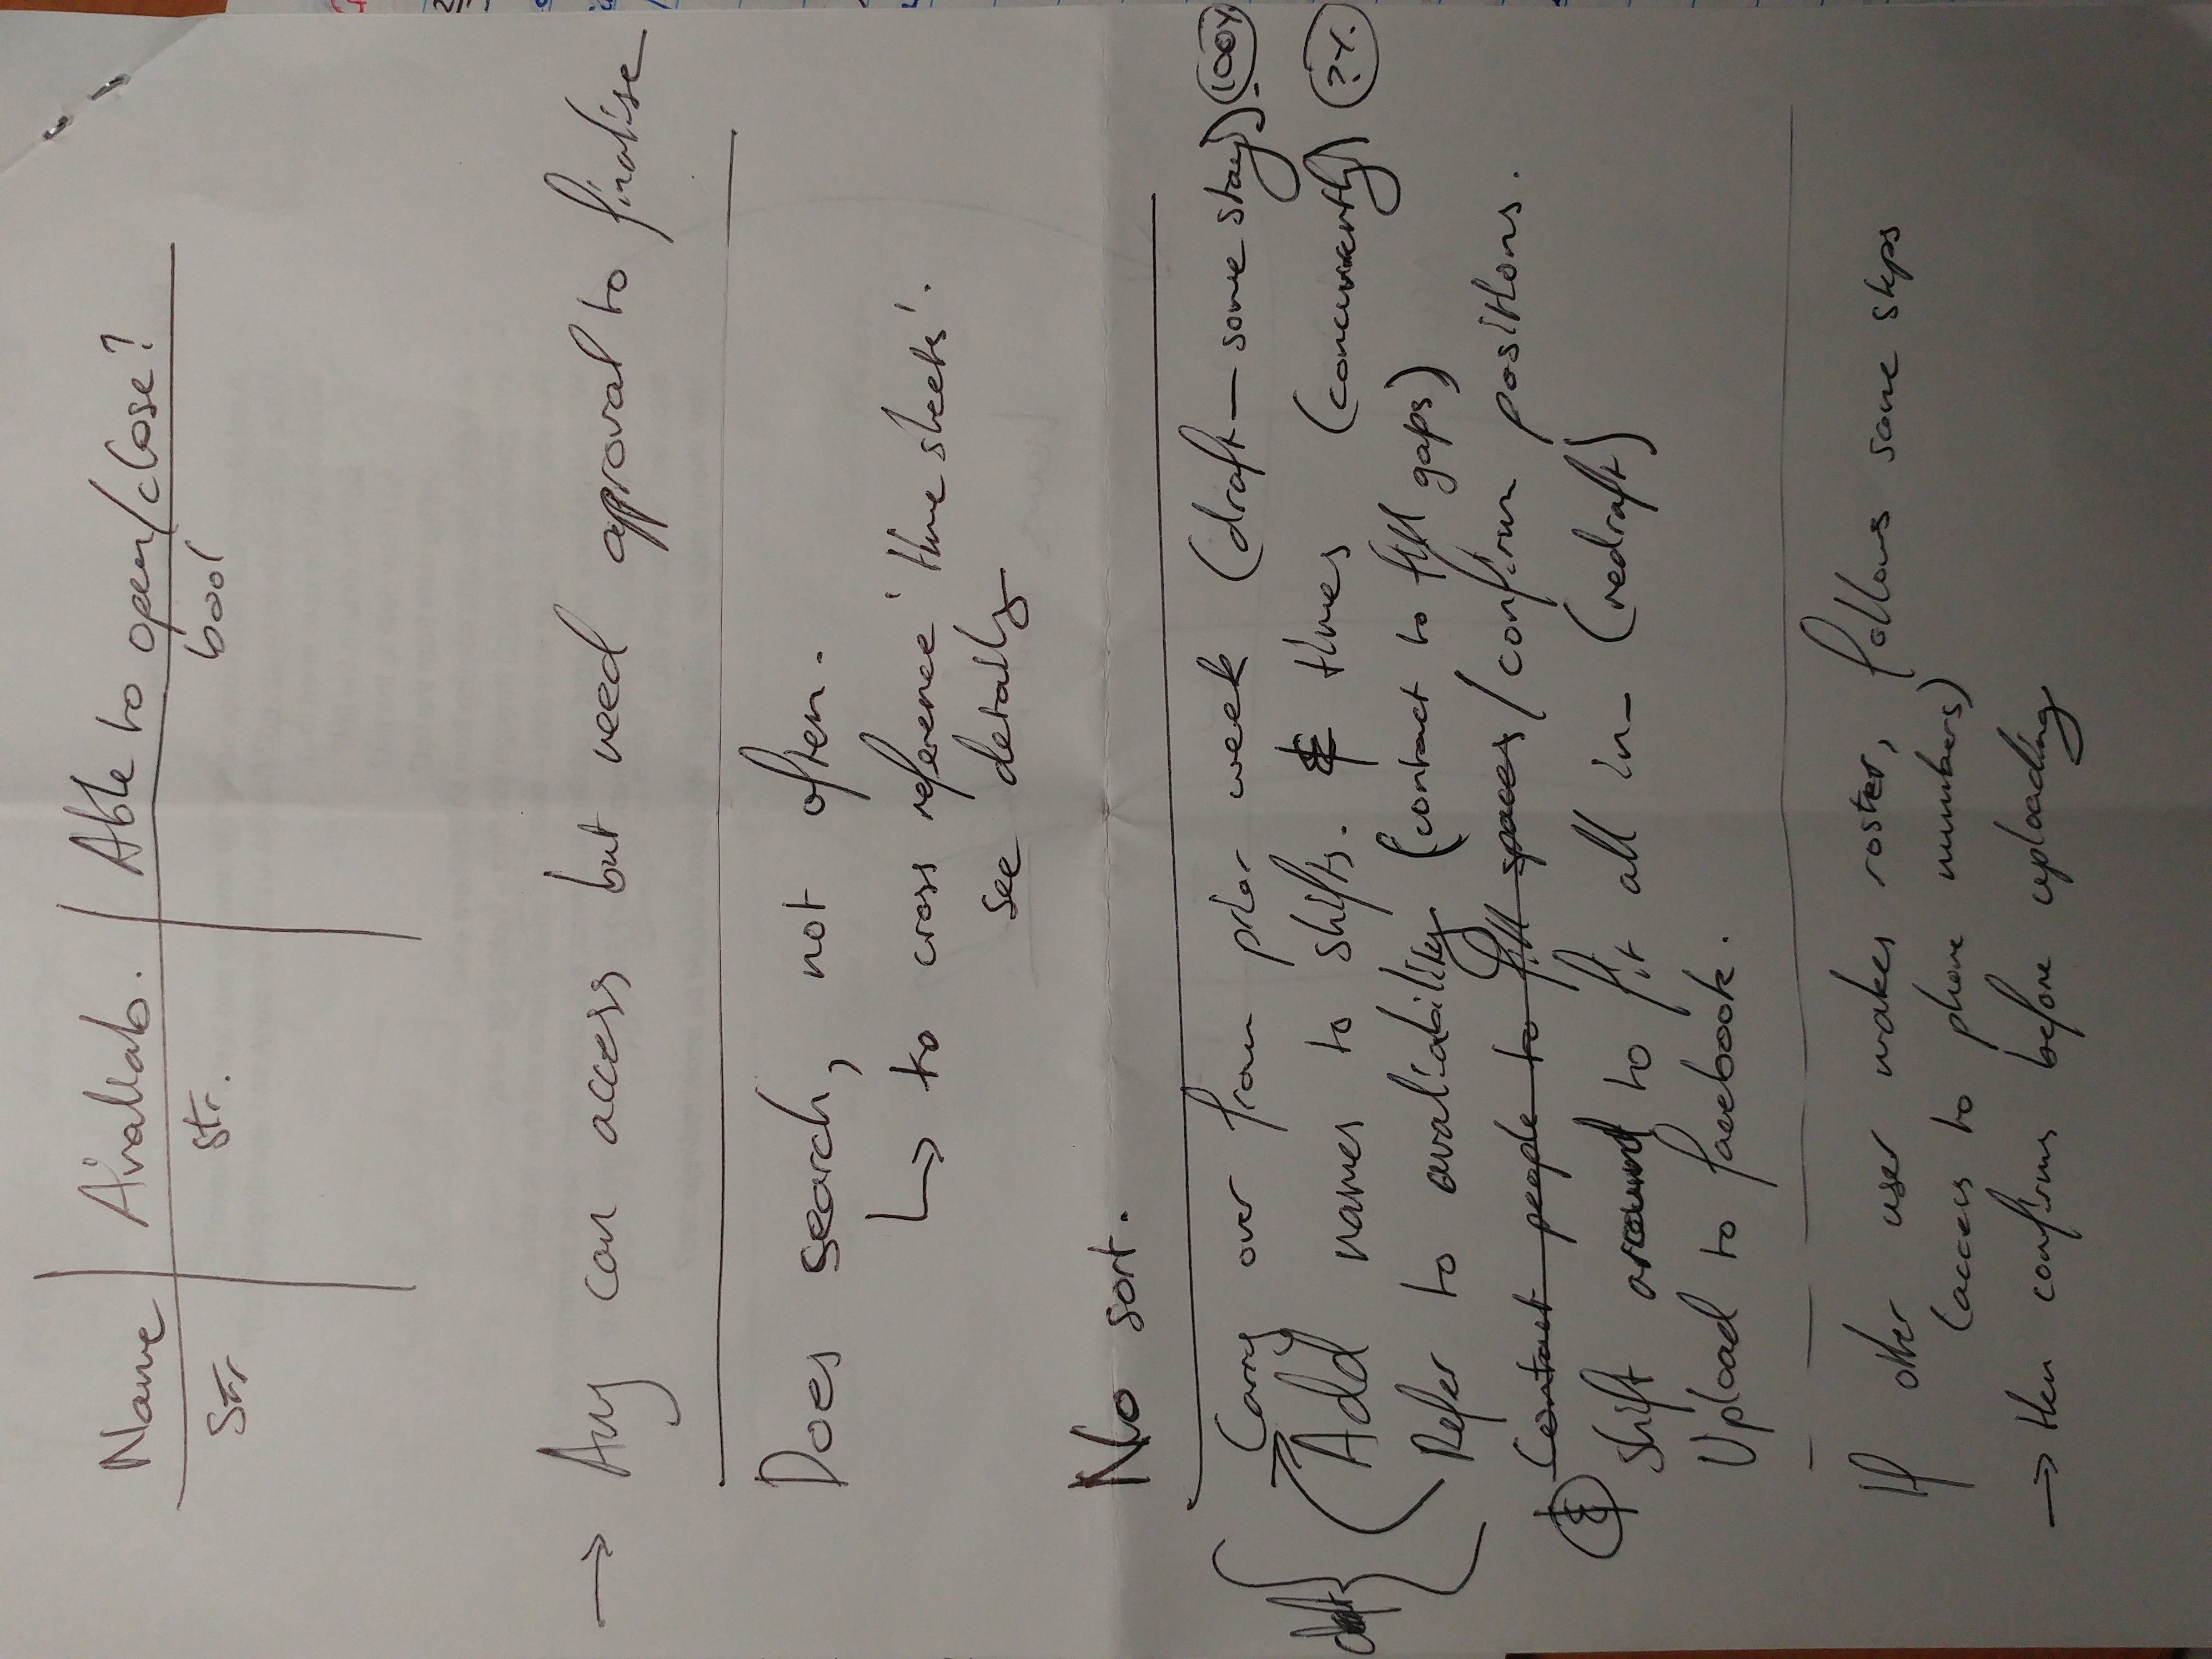 Name | Availab. | Able to open/close?
str | str. | bool
→ Any can access but need approval to finalise
Does search, not often.
↳ to cross reference 'time sheets'.
see details
No sort.
Carry over from prior week (draft — some stay). 100%
Add names to shifts. & times (concurrently) ?%
draft
Refer to avaliability (contact to fill gaps)
Contact people to fill spaces / confirm positions.
&
shift around to fit all in - (redraft)
Upload to facebook.
If other user makes roster, follows same steps
(access to phone numbers)
→ then confirms before uploading